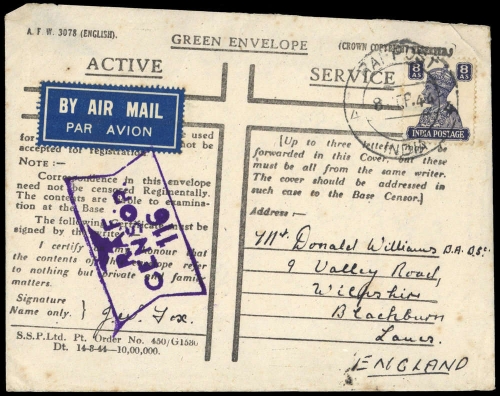 A. F. W. 3078 (ENGLISH).
GREEN ENVELOPE
(CROWN COPYRIGHT
ACTIVE
SERVICE
8 AS
8 AS
INDIA POSTAGE
INDIA
BY AIR MAIL
PAR AVION
used
accepted for registration
NOTE :—
Correspondence in this envelope
need not be censored Regimentally.
The contents are liable to examina-
tion at the Base
The following Certificate must be
signed by the writer
I certify on my honour that
the contents of this envelope refer
to nothing but private and family
matters.
Signature
Name only. }
R.A.F.
CENSOR
116
S.S.P.Ltd. Pt. Order No. 450/G1580
Dt. 14-8-44—10,00,000.
[Up to three letters may be
forwarded in this Cover, but these
must be all from the same writer.
The cover should be addressed in
such case to the Base Censor.]
Address :—
Mr. Donald Williams B.A. B.Sc.
9 Valley Road,
Wilpshire
Blackburn
Lancs.
ENGLAND